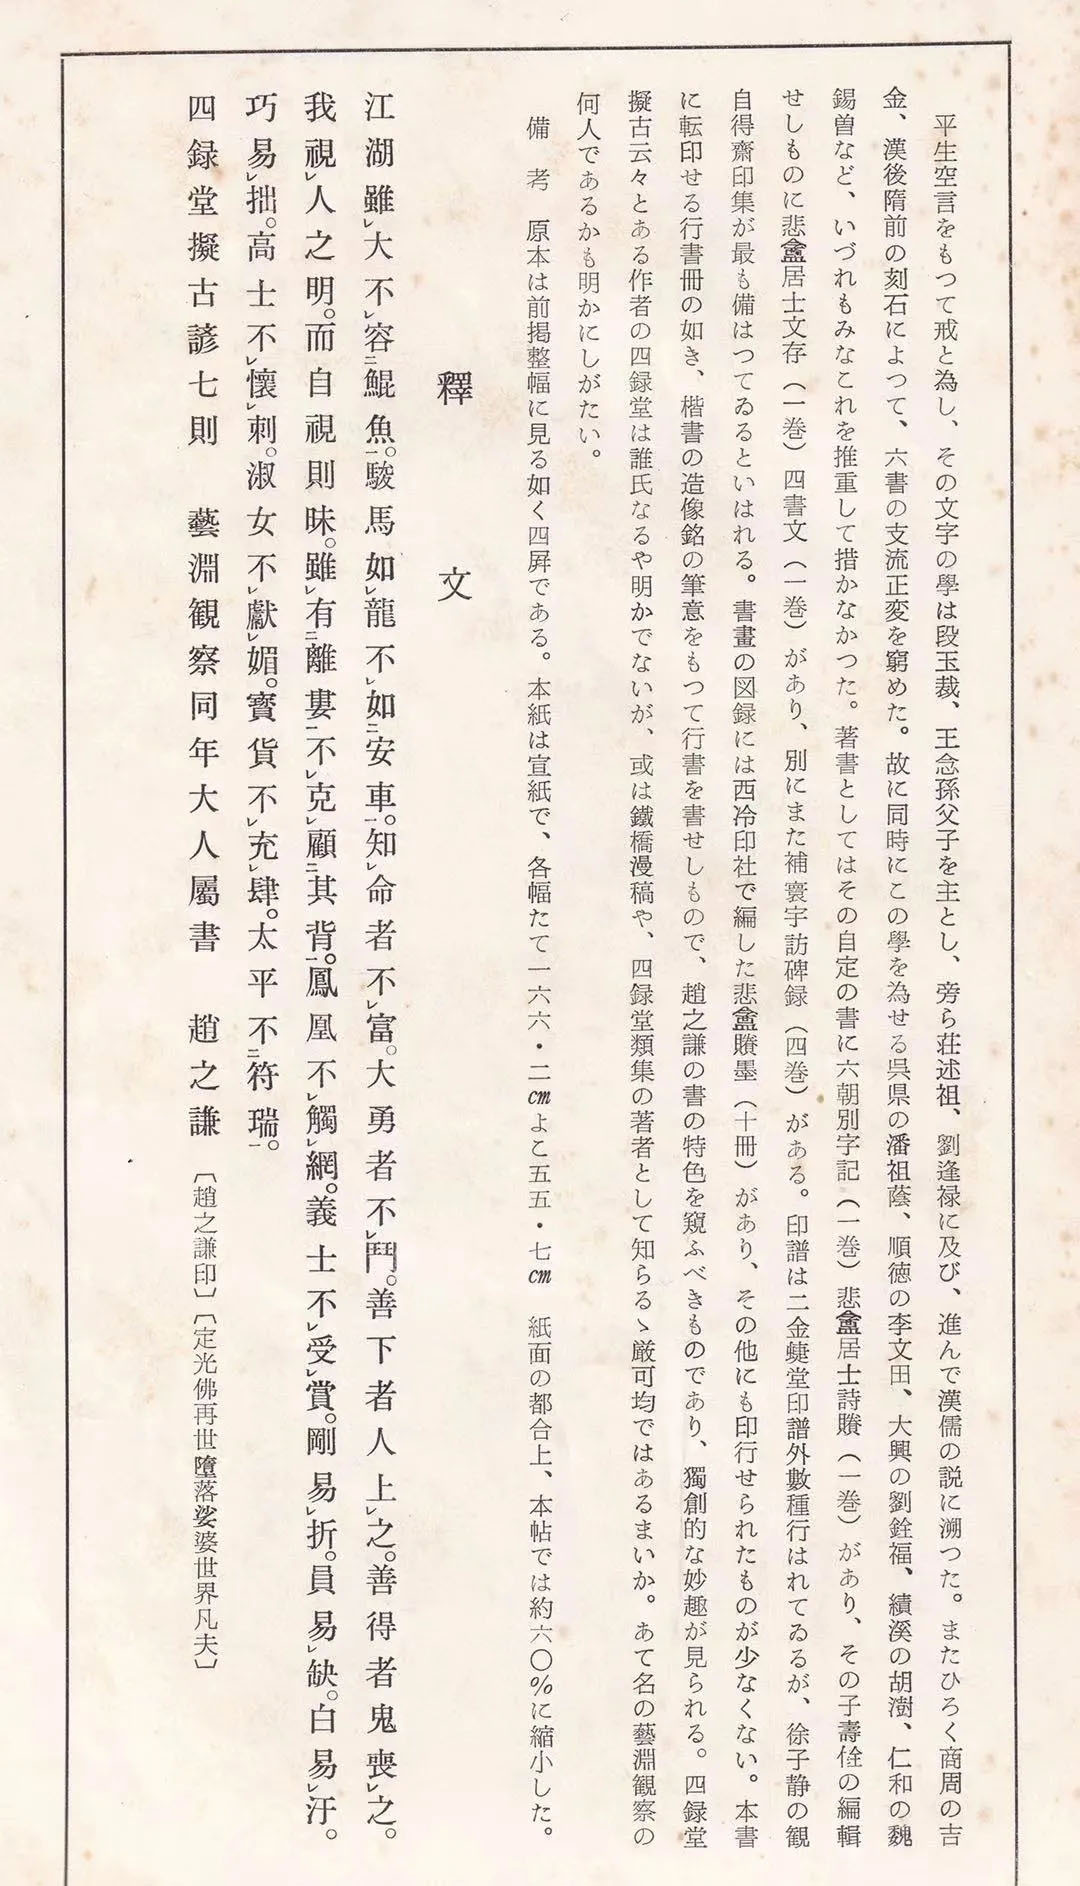 平生空言をもつて戒と為し、その文字の學は段玉裁、王念孫父子を主とし、旁ら荘述祖、劉逢禄に及び、進んで漢儒の説に溯つた。またひろく商周の吉
金、漢後隋前の刻石によつて、六書の支流正変を窮めた。故に同時にこの學を為せる呉県の潘祖蔭、順徳の李文田、大興の劉銓福、績溪の胡澍、仁和の魏
錫曽など、いづれもみなこれを推重して措かなかつた。著書としてはその自定の書に六朝別字記（一巻）悲盦居士詩賸（一巻）があり、その子壽佺の編輯
せしものに悲盦居士文存（一巻）四書文（一巻）があり、別にまた補寰宇訪碑録（四巻）がある。印譜は二金蜨堂印譜外數種行はれてゐるが、徐子静の観
自得齋印集が最も備はつてゐるといはれる。書畫の図録には西冷印社で編した悲盦賸墨（十冊）があり、その他にも印行せられたものが少なくない。本書
に転印せる行書冊の如き、楷書の造像銘の筆意をもつて行書を書せしもので、趙之謙の書の特色を窺ふべきものであり、獨創的な妙趣が見られる。四録堂
擬古云々とある作者の四録堂は誰氏なるや明かでないが、或は鐵橋漫稿や、四録堂類集の著者として知らるゝ厳可均ではあるまいか。あて名の藝淵観察の
何人であるかも明かにしがたい。
備考　原本は前掲整幅に見る如く四屏である。本紙は宣紙で、各幅たて一六六・二cmよこ五五・七cm　紙面の都合上、本帖では約六〇%に縮小した。
釋文
江湖雖レ大不レ容二鯤魚一。駿馬如レ龍不レ如二安車一。知レ命者不レ富。大勇者不レ鬥。善下者人上レ之。善得者鬼喪レ之。
我視レ人之明。而自視則昧。雖レ有二離婁一不レ克レ顧二其背一。鳳凰不レ觸レ網。義士不レ受レ賞。剛易レ折。員易レ缺。白易レ汙。
巧易レ拙。高士不レ懷レ刺。淑女不レ獻レ媚。寳貨不レ充レ肆。太平不二符瑞一。
四録堂擬古諺七則　藝淵観察同年大人屬書　趙之謙　〔趙之謙印〕〔定光佛再世墮落娑婆世界凡夫〕